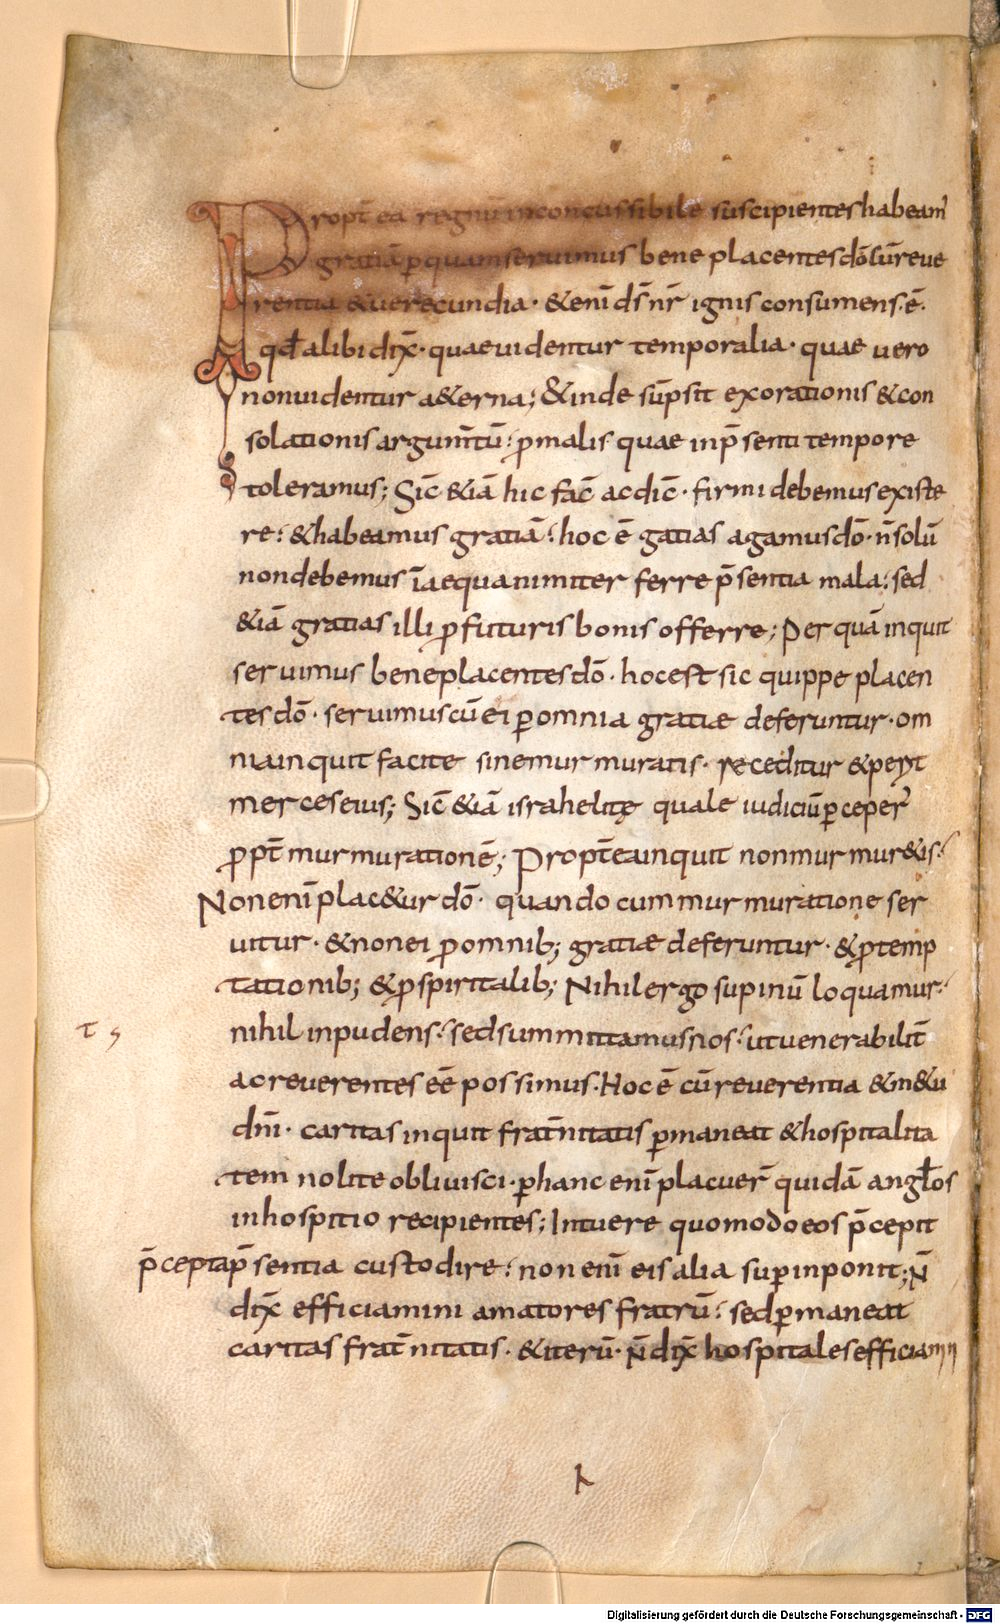 Propt̄ ea regnū inconcussibile suscipientes habeam̄
gratiā ꝑ quam seruimus bene placentes dō cū reue
rentia & uerecundia · & enī ds̄ nr̄ ignis consumens · ē ·
qđ alibi dix̄ · quae uidentur temporalia · quae uero
non uidentur a&erna; & inde sūpsit exorationis & con
solationis argum̄tū : ꝓ malis quae in p̄senti tempore
toleramus; Sic̄ &iā hic fac̄ ac dic̄ · firmi debemus existe
re : & habeamus gratiā : hoc ē gatias agamus dō · n̄ solū
non debemus īa equanimiter ferre p̄sentia mala : sed
&iā gratias illi ꝓ futuris bonis offerre; Per quā inquit
seruimus bene placentes dō · hoc est sic quippe placen
tes dō · seruimus cū ei ꝑ omnia gratiæ deferuntur · om
nia inquit facite sine murmuratis · receditur & perit
merces eius; Sic̄ &iā israhelitę quale iudiciū ꝑceper̄
ꝓpt̄ murmurationē; Propt̄ea inquit non murmur&is :
Non enī plac&ur dō · quando cum murmuratione ser
uitur · & non ei ꝑ omnib; gratiæ deferuntur · & ꝓ temp
tationib; & ꝓ spiritalib; Nihil ergo supinū loquamur :
nihil inpudens : sed summittamus nos : ut uenerabilit̄
ac reuerentes eē possimus · Hoc ē cū reuerentia & m&u
dn̄i · caritas inquit frat̄nitatis ꝑmaneat & hospitalita
tem nolite obliuisci · ꝑ hanc enī placuer̄ quidā angłos
in hospitio recipientes; Intuere quomodo eos p̄cepit
p̄cepta p̄sentia custodire : non enī eis alia suꝑinponit; N̄
dix̄ efficiamini amatores fratrū : sed ꝑmaneat
caritas frat̄nitatis · & iterū · n̄ dix̄ hospitales efficiamini
Digitalisierung gefördert durch die Deutsche Forschungsgemeinschaft - DFG